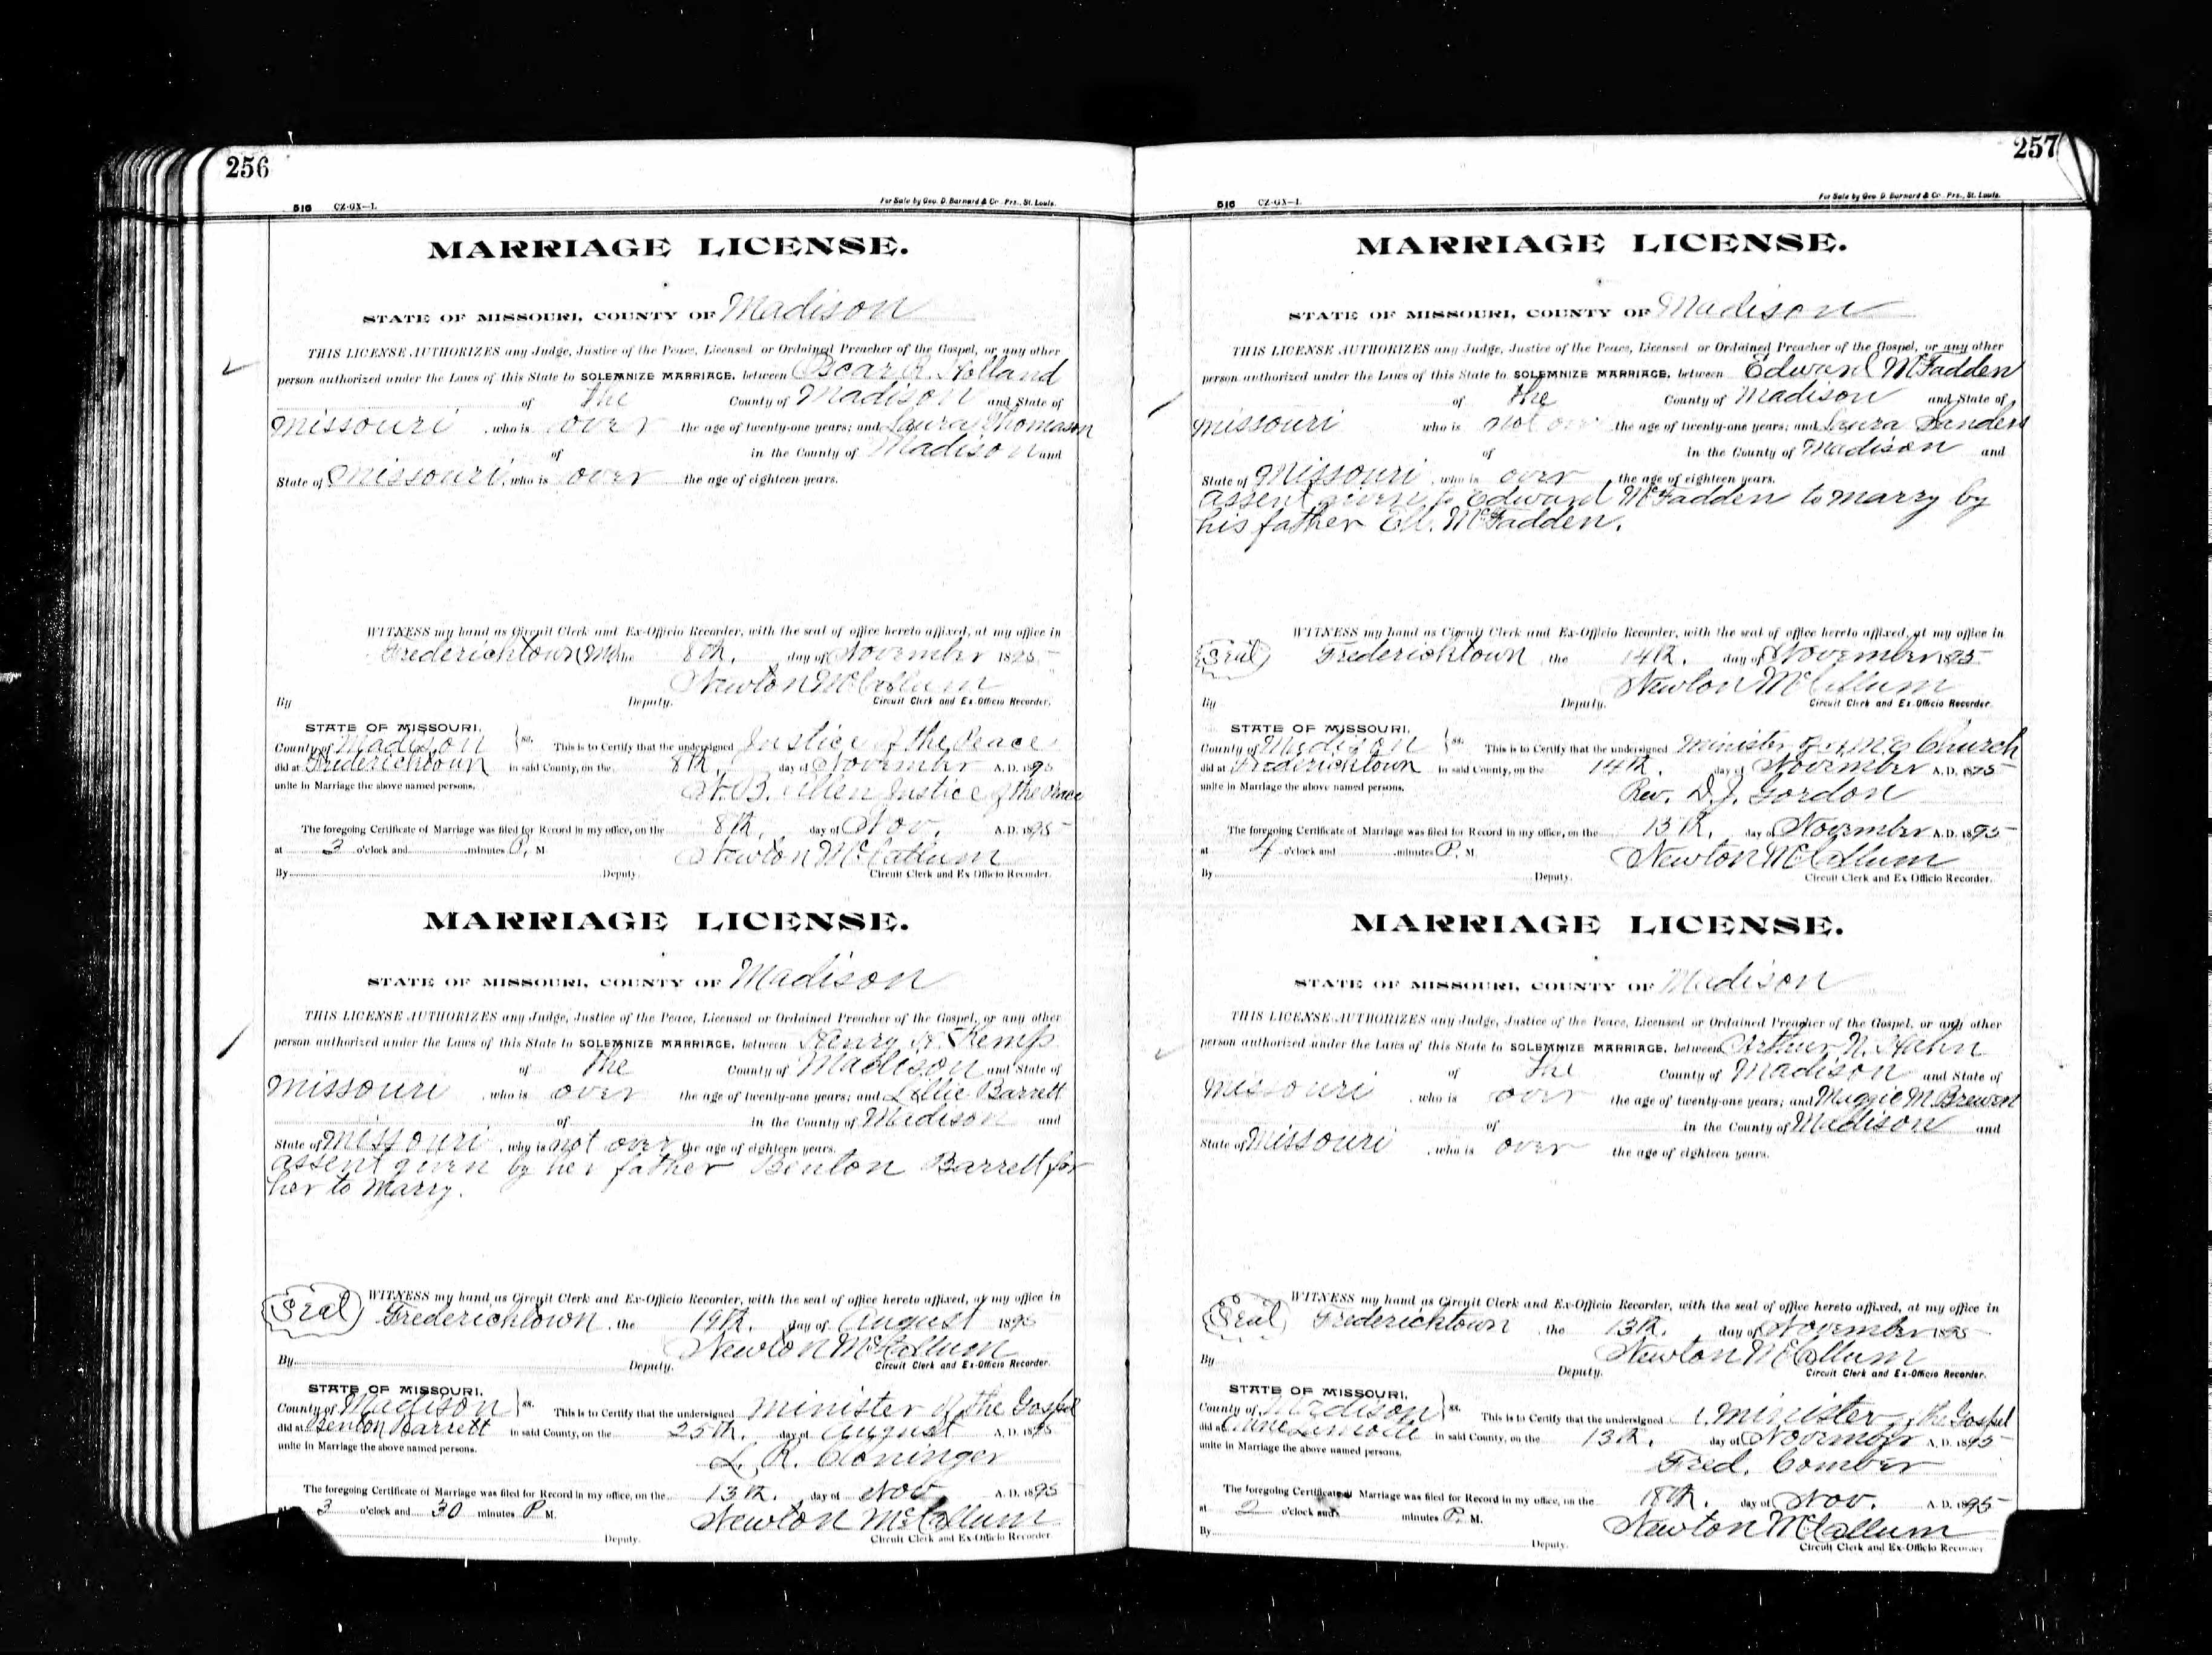 256
516 CZ-GX—1. For Sale by Geo. D. Barnard & Co. Prs., St. Louis.
MARRIAGE LICENSE.
STATE OF MISSOURI, COUNTY OF Madison
THIS LICENSE AUTHORIZES any Judge, Justice of the Peace, Licensed or Ordained Preacher of the Gospel, or any other
person authorized under the Laws of this State to SOLEMNIZE MARRIAGE, between Oscar R. Holland
of the County of Madison and State of
Missouri, who is over the age of twenty-one years; and Laura Thomason
of in the County of Madison and
State of Missouri, who is over the age of eighteen years.
WITNESS my hand as Circuit Clerk and Ex-Officio Recorder, with the seal of office hereto affixed, at my office in
Fredericktown Mo the 8th. day of November 1895
Newton McCollum
By Deputy. Circuit Clerk and Ex-Officio Recorder.
STATE OF MISSOURI,
County of Madison ss. This is to Certify that the undersigned Justice of the Peace
did at Fredericktown in said County, on the 8th. day of November A. D. 1895
unite in Marriage the above named persons. Allen Justice of the Peace
The foregoing Certificate of Marriage was filed for Record in my office, on the 8th. day of Nov. A.D. 1895
at 3 o'clock and minutes P. M. Newton McCollum
By Deputy. Circuit Clerk and Ex Officio Recorder.
MARRIAGE LICENSE.
STATE OF MISSOURI, COUNTY OF Madison
THIS LICENSE AUTHORIZES any Judge, Justice of the Peace, Licensed or Ordained Preacher of the Gospel, or any other
person authorized under the Laws of this State to SOLEMNIZE MARRIAGE, between Henry Kemp
of the County of Madison and State of
Missouri, who is over the age of twenty-one years; and Lillie Barrett
of in the County of Madison and
State of Missouri, why is not over the age of eighteen years.
assent given by her father Benton Barrett for
her to marry.
WITNESS my hand as Circuit Clerk and Ex-Officio Recorder, with the seal of office hereto affixed, at my office in
Seal Fredericktown, the 19th. day of August 1895
Newton McCollum
By Deputy. Circuit Clerk and Ex-Officio Recorder.
STATE OF MISSOURI,
County of Madison ss. This is to Certify that the undersigned Minister of the Gospel
did at Benton Barrett in said County, on the 25th. day of August A. D. 1895
unite in Marriage the above named persons. L. R. Cloninger
The foregoing Certificate of Marriage was filed for Record in my office, on the 13th. day of Nov A.D. 1895
at 3 o'clock and 30 minutes P M. Newton McCollum
Deputy. Circuit Clerk and Ex-Officio Recorder
257
516 CZ-GX—1. For Sale by Geo. D. Barnard & Co. Prs., St. Louis.
MARRIAGE LICENSE.
STATE OF MISSOURI, COUNTY OF Madison
THIS LICENSE AUTHORIZES any Judge, Justice of the Peace, Licensed or Ordained Preacher of the Gospel, or any other
person authorized under the Laws of this State to SOLEMNIZE MARRIAGE, between Edward McFadden
of the County of Madison and State of
Missouri who is not over the age of twenty-one years; and Laura Sanders
of in the County of Madison and
State of Missouri, who is over the age of eighteen years.
assent given to Edward McFadden to marry by
his father McFadden.
WITNESS my hand as Circuit Clerk and Ex-Officio Recorder, with the seal of office hereto affixed, at my office in
Seal Fredericktown, the 14th. day of November 1895
Newton McCollum
By Deputy. Circuit Clerk and Ex-Officio Recorder.
STATE OF MISSOURI,
County of Madison ss. This is to Certify that the undersigned Minister of Church
did at Fredericktown in said County, on the 14th. day of November A. D. 1895
unite in Marriage the above named persons. Rev. D. J. Gordon
The foregoing Certificate of Marriage was filed for Record in my office, on the 15th. day of November A.D. 1895
at 4 o'clock and minutes P. M. Newton McCollum
By Deputy. Circuit Clerk and Ex Officio Recorder.
MARRIAGE LICENSE.
STATE OF MISSOURI, COUNTY OF Madison
THIS LICENSE AUTHORIZES any Judge, Justice of the Peace, Licensed or Ordained Preacher of the Gospel, or any other
person authorized under the Laws of this State to SOLEMNIZE MARRIAGE, between Arthur N. Hahn
of the County of Madison and State of
Missouri, who is over the age of twenty-one years; and Maggie M. Brewen
of in the County of Madison and
State of Missouri, who is over the age of eighteen years.
WITNESS my hand as Circuit Clerk and Ex-Officio Recorder, with the seal of office hereto affixed, at my office in
Seal Fredericktown, the 13th. day of November 1895
Newton McCollum
By Deputy. Circuit Clerk and Ex-Officio Recorder.
STATE OF MISSOURI,
County of Madison ss. This is to Certify that the undersigned Minister of the Gospel
did at Mine Lamotte in said County, on the 13th. day of November A. D. 1895
unite in Marriage the above named persons. Fred. Comber
The foregoing Certificate of Marriage was filed for Record in my office, on the 18th. day of Nov. A. D. 1895
at 2 o'clock and minutes P. M. Newton McCollum
By Deputy. Circuit Clerk and Ex-Officio Recorder